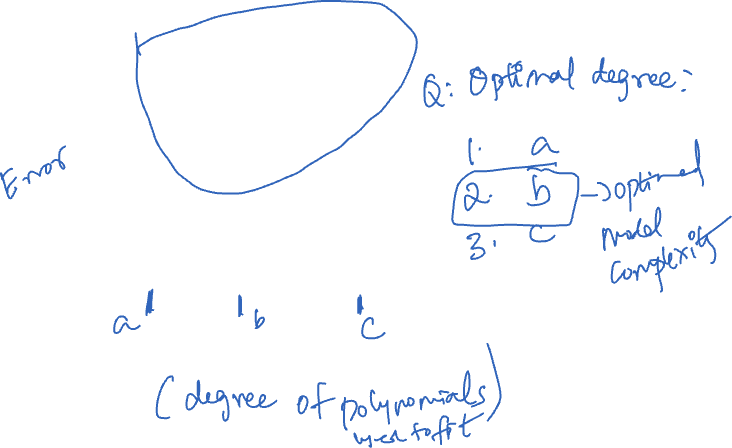 Q: Optimal degree:
Error
1. a
2. b → optimal model complexity
3. c
a b c
(degree of polynomials used to fit)